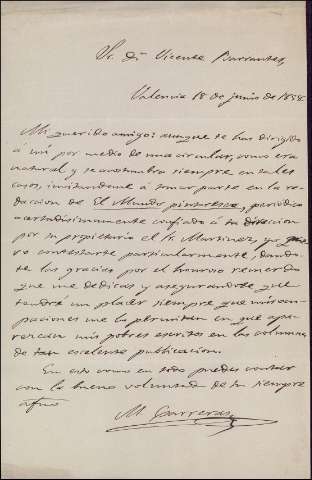 Sr. Dn. Vicente Barrantes,
Valencia 18 de junio de 1858
Mi querido amigo: aunque te has dirigido
á mí por medio de una circular, como era
natural y se acostumbra siempre en tales
casos, invitandome á tomar parte en la re-
daccion de El Mundo pintoresco, periódico
acertadísimamente confiado á tu direccion
por su propietario el Sr. Martinez, yo quie
ro contestarte particularmente, dando-
te las gracias por el honroso recuerdo
que me dedicas y asegurandote que
tendré un placer siempre que mis ocu-
paciones me lo permitan en que apa-
rezcan mis pobres escritos en las columnas
de tan escelente publicacion.
En esto como en todo puedes contar
con la buena voluntad de tu siempre
afmo
M. Carreras